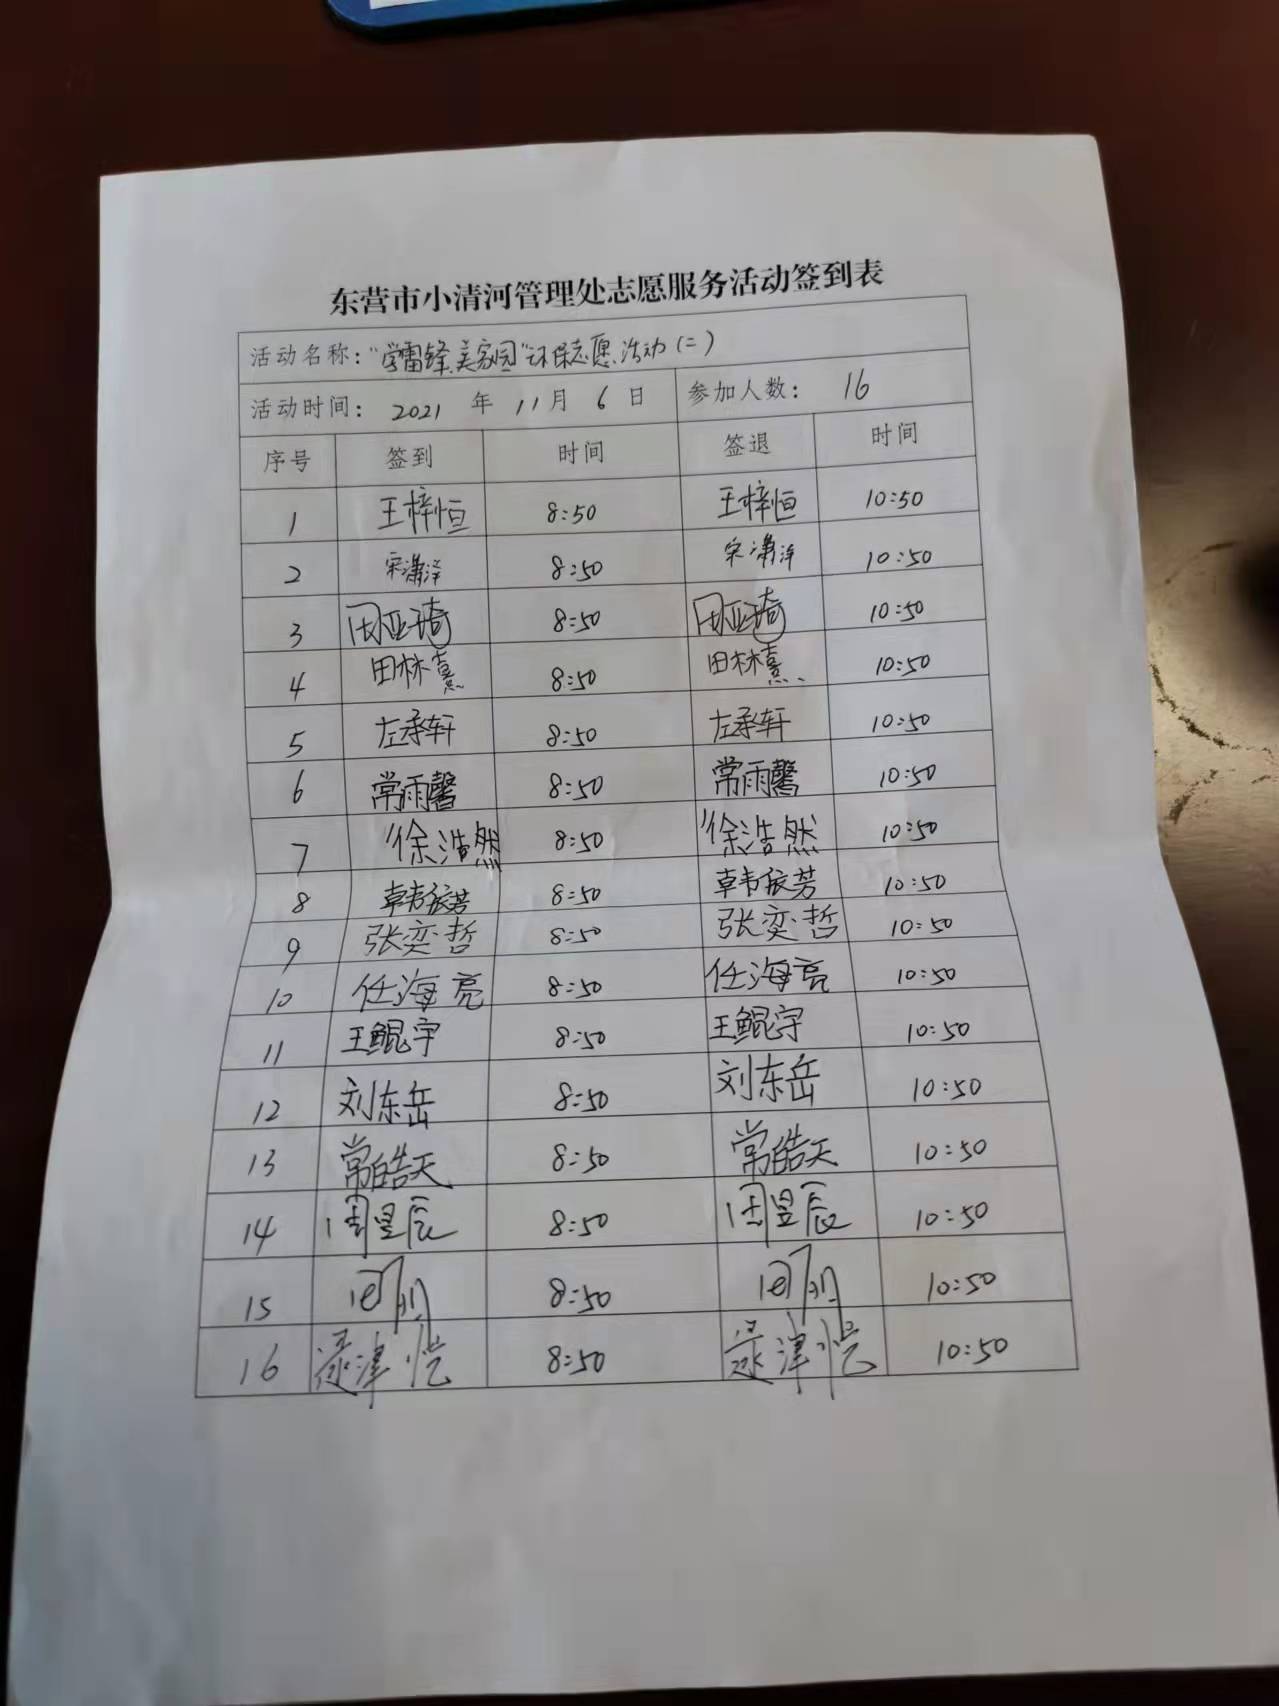 东营市小清河管理处志愿服务活动签到表
活动名称：“学雷锋、美家园”环保志愿活动（二）
活动时间： 2021 年 11 月 6 日 参加人数： 16
序号 签到 时间 签退 时间
1 王梓恒 8:50 王梓恒 10:50
2 宋潇洋 8:50 宋潇洋 10:50
3 田亚琦 8:50 田亚琦 10:50
4 田林熹 8:50 田林熹 10:50
5 左承轩 8:50 左承轩 10:50
6 常雨馨 8:50 常雨馨 10:50
7 徐浩然 8:50 徐浩然 10:50
8 韩依芳 8:50 韩依芳 10:50
9 张奕哲 8:50 张奕哲 10:50
10 任海亮 8:50 任海亮 10:50
11 王鲲宇 8:50 王鲲宇 10:50
12 刘东岳 8:50 刘东岳 10:50
13 常皓天 8:50 常皓天 10:50
14 周昱辰 8:50 周昱辰 10:50
15 8:50 10:50
16 津恺 8:50 津恺 10:50